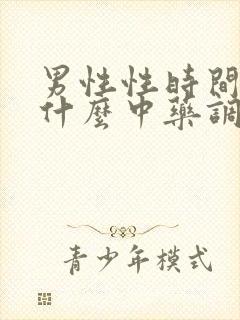 男性性時間
什麼中藥調
青少年模式